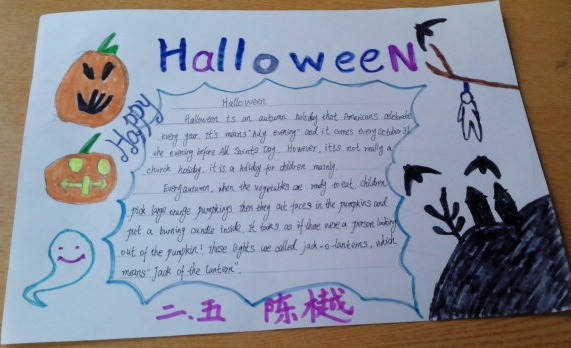 HalloweeN
Happy
Halloween
Halloween is an autumn holiday that Americans celebrate
every year. It's means "holy evening" and it comes every October 31
the evening before All Saints Day. However, it's not really a
church holiday. it is a holiday for children mainly.
Every autumn, when the vegetables are ready to eat, children
pick large orange pumpkings. then they cut faces in the pumpkins and
put a burning candle inside. It looks as if there were a person looking
out of the pumpkin! these lights are called jack-o-lanterns, which
means "Jack of the lantern".
二.五 陈樾